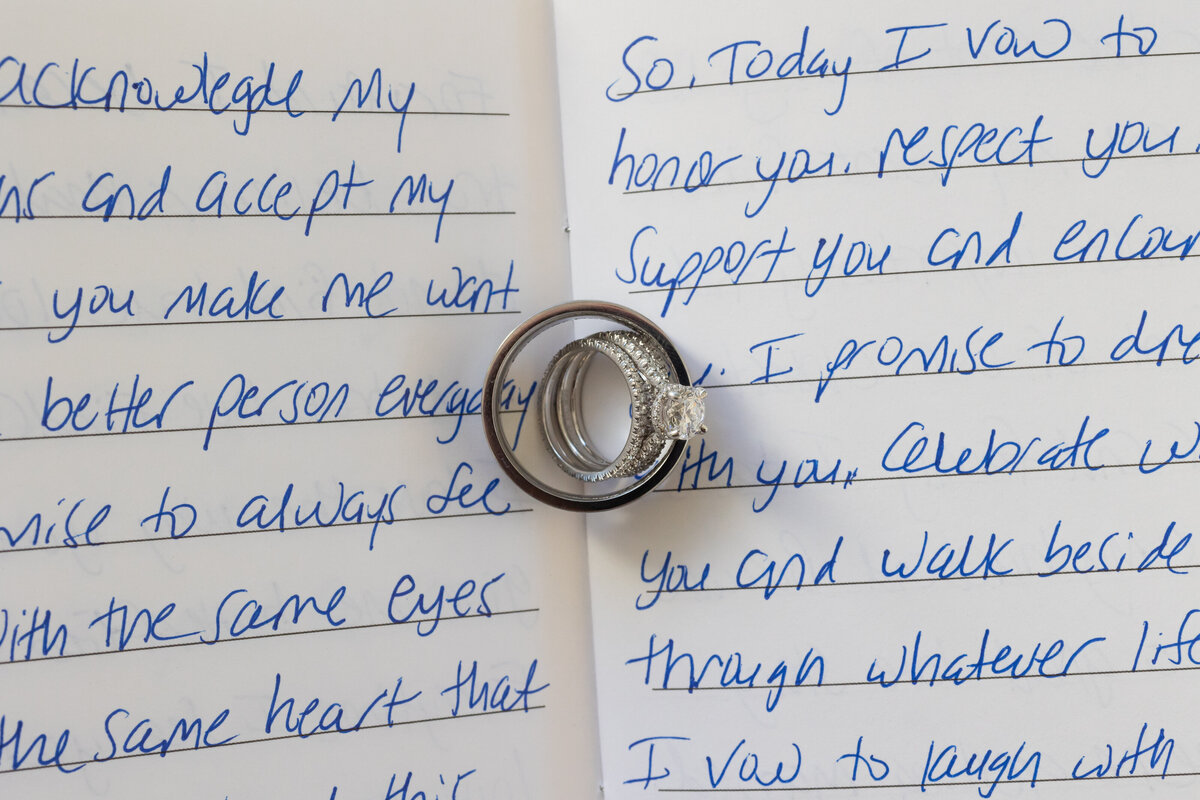 acknowlegde my
and accept my
you make me want
better person everyday
to always see
with the same eyes
the same heart that
this
So, Today I vow to
honor you. respect you.
Support you and encour
I promise to dre
with you, Celebrate w
you and walk beside
through whatever life
I vow to laugh with